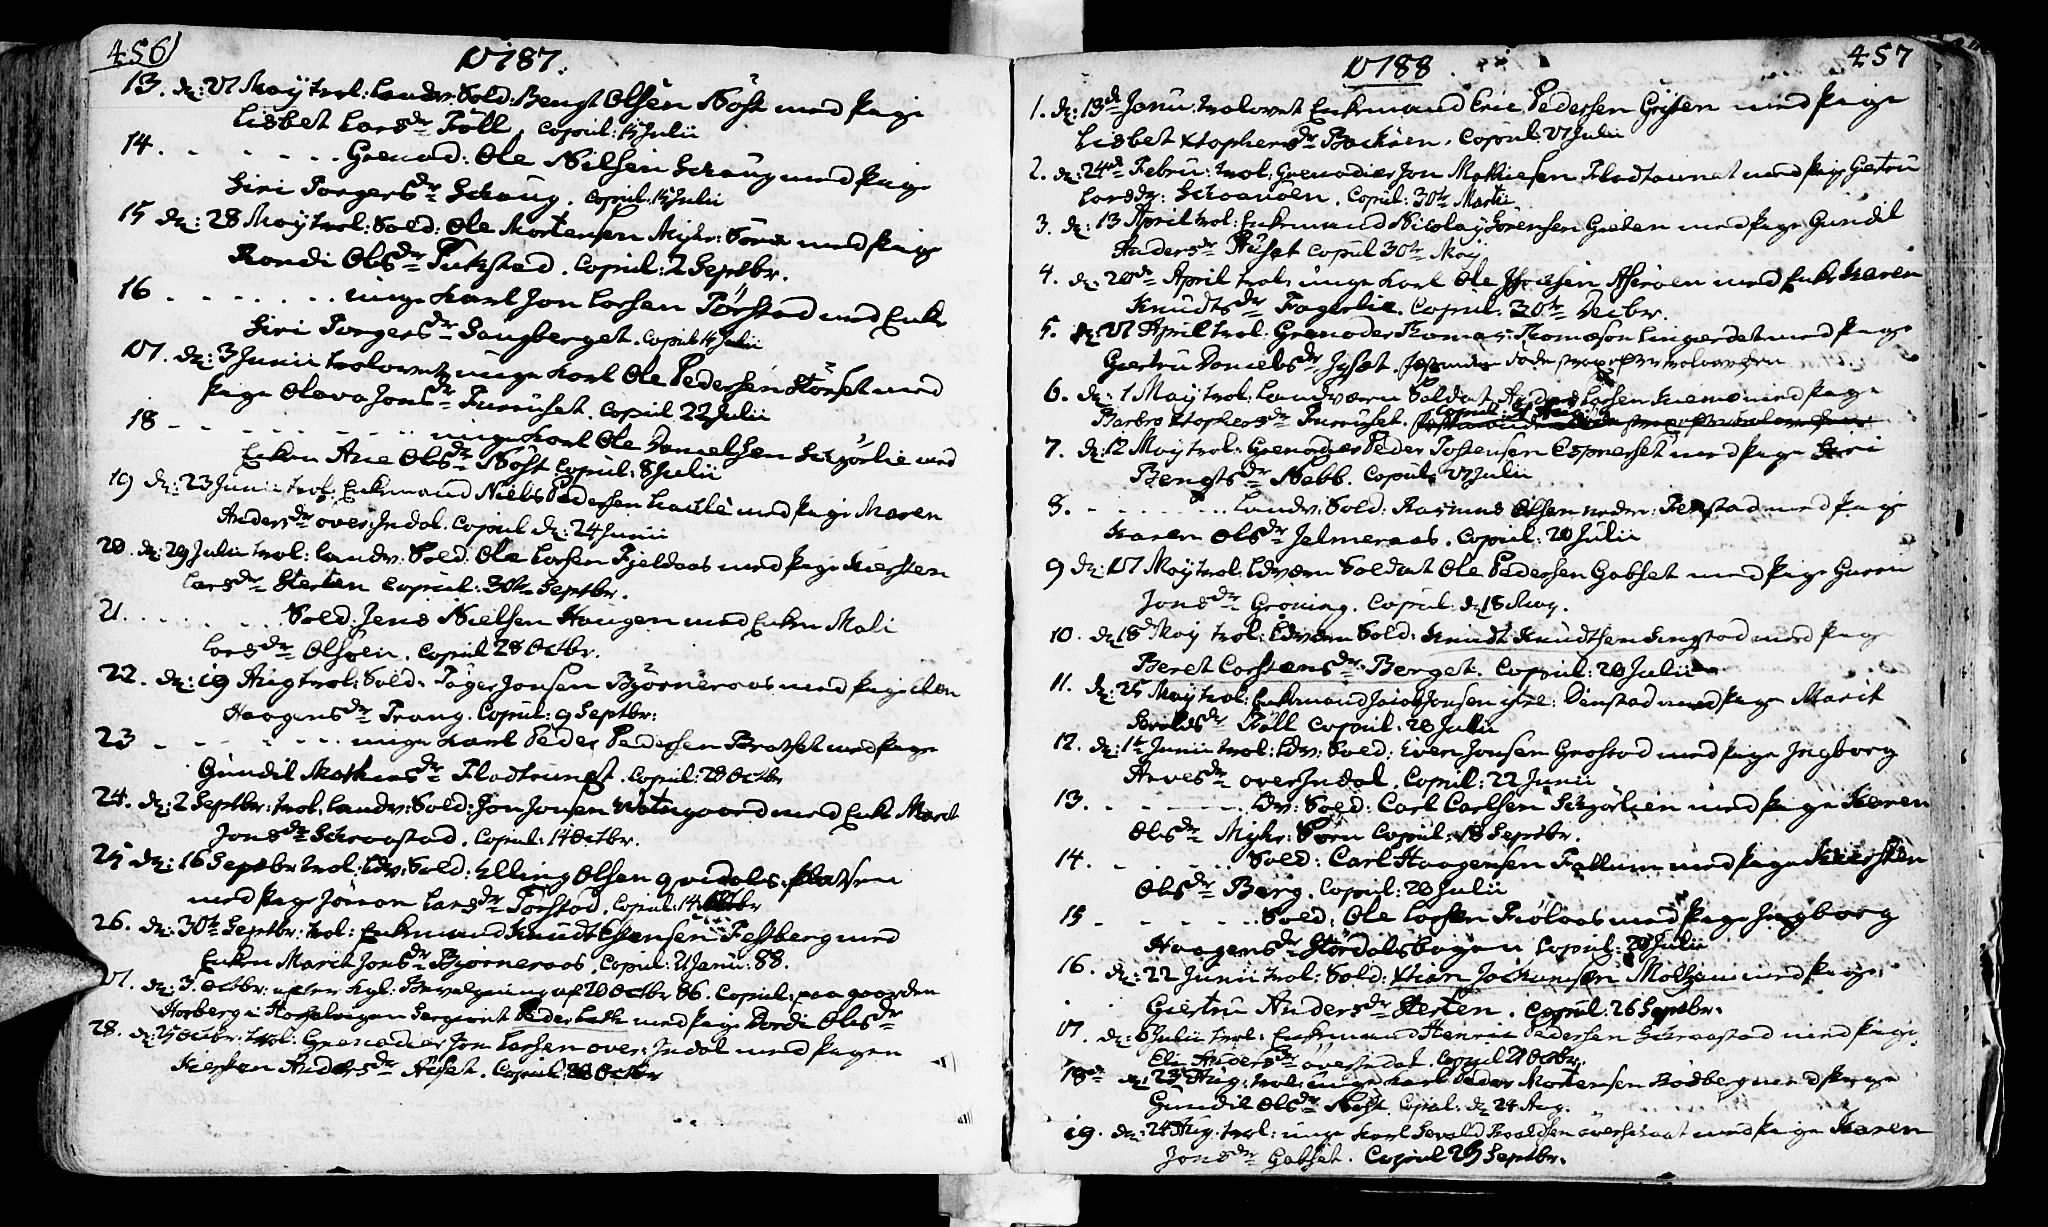 456
1787.
13. d: 17 Maÿ trol: Landv: Sold: Bengt Olsen Nöst med Pige
Lisbet Larsdr Föll. Copul: 15 Julii
14. - - - - - - Grenad: Ole Nilsen Schaug med Pige
Siri Torgersdr Schaug. Copul: 15 Julii
15 d: 28 Maÿ trol: Sold: Ole Mortensen Myhr: Sörn med Pige
Randi Olsdr Tukstad. Copul: 2 Septbr.
16 - - - - - - unge Karl Jon Larsen Törstad med Enke
Siri Torgersdr Haugberget. Copul: 15 Julii
17. d: 3 Junii trolovet unge Karl Ole Pedersen Störset med
Pige Olava Jonsdr Furuset. Copul 22 Julii
18 - - - - - - unge Karl Ole Danielsen Schjörlie med
Enken Ane Olsdr Nöst. Copul: 8 Julii
19 d: 23 Junii trol: Enkemand Niels Pedersen med Pige Maren
Andersdr over Indal. Copul d: 24 Junii
20. d: 29 Julii trol: Landv: Sold: Ole Larsen Fjeldaas med Pige Kiersten
Larsdr Sterten Copul: 30te Septbr.
21. - - - - - - Sold: Jens Nielsen Haugen med Enken Mali
Larsdr Olsöen. Copul 28 Octbr.
22. d: 19 Aug trol: Sold: Töger Jonsen Björneraas med Pige Elen
Haagensdr Prang. Copul: 9 Septbr:
23 - - - - - - unge Karl Peder Pedersen Bratset med Pige
Gundil Mathiasdr Fladtrunet. Copul: 28 Octbr
24. d: 2 Septbr: trol: Landv: Sold: Jon Jonsen Watngaard med Enke Marit
Jonsdr Schraastad. Copul: 14 Octbr.
25 d: 16 Septbr trol: Ldv: Sold: Elling Olsen qvidals platsen
med Pige Jöran Larsdr Törstad. Copul: 14 Octbr
26. d: 30te Septbr: trol: Enkemand Knudt Estensen Festberg med
Enken Marit Jonsdr Björneraas. Copul: 21 Janu: 88.
27. d: 3. Octbr: efter Kgl: Bevilgning af 20 Octbr 86. Copul: paa gaarden
Horberg i Sergiant Peder med Pige Dordi Olsdr
28. d: 25 Octbr: trol: Grenadier Jon Larsen over: Indal med Pigen
Kiersten Andersdr Hüset. Copul: 28 Octbr
457
1788.
1. d: 13de Janu: trolovet Enkemand Eric Pedersen Grÿsen med Pige
Lisbet Xtophersdr Bachöen. Copul 17 Julii
2. d: 24de Febru: trol: Grenadier Jon Mathiesen Fladtaunet med Pige Giertru
Larsdr: Schraaröen. Copul: 30te Martii
3. d: 13 April trol: Enkemand Nicolaÿ Sörensen Greten med Pige Gundil
Andersdr Hüset Copul 30te Maÿ
4. d: 20de April trol: unge Karl Ole Aseröen med Enke Karen
Knudtsdr Fagerlie. Copul: 30te Decbr.
5. d: 27 April trol: Grenader Tomas Thomæson Lingerdet med Pige
Giertru Danielsdr Jÿset.
6. d: 1 Maÿ trol: Landværn Soldat Anders Larsen med Pige
Barbro Xtophersdr Furuset. Copul: 4 Aug:
7. d: 12 Maÿ trol: Grenadier Peder Tostensen Espnerset med Pige Siri
Bengtsdr Nebb. Copul: 17 Julii
8. - - - - - - Landv: Sold: Rasmus Olsen neder: Ferstad med Pige
Karen Olsdr Jelmeraas. Copul: 20 Julii
9 d: 17 Maÿ trol: Ldværn Soldat Ole Pedersen Gabset med Pige Guru
Jonsdr Gröning. Copul: d 18 Maÿ.
10. d: 18 Maÿ trol: Ldværn Sold: Knudt Knudtsen Singstad med Pige
Beret Carstensdr Berget. Copul: 20 Julii
11. d: 25 Maÿ trol: Enkemand Jacob Jonsen Dinstad med Pige Marit
Sevaldsdr Köll Copul: 20 Julii
12. d: 1te Junii trol: Ldv: Sold: Even Jonsen Grostad med Pige Ingborg
Arvesdr over Indal. Copul: 22 Junii
13. - - - - - - Ldv: Sold: Carl Carlsen Schjörlien med Pige Karen
Olsdr Myhr: Sörn Copul: 18 Septbr.
14. - - - - - - Sold: Carl Haagensen Fallum med Pige Kiersten
Olsdr Berg. Copul: 20 Julii
15 - - - - - - Sold: Ole Larsen med Pige Ingborg
Haagensdr Stördalsbogen Copul: 20 Julii
16. d: 22 Junii trol: Sold: Xtian Jochumsen med Pige
Giertru Andersdr Sterten. Copul: 26 Septbr.
17. d: 6 Julii trol: Enkemand Henric Pedersen Schraastad med Pige
Eli Andersdr overIndal. Copul 21 Octbr.
18de d: 23 Aug: trol: unge Karl Peder Mortensen Rödberg med Pige
Gundil Olsdr Nöst. Copul: d: 24 Aug.
19. d: 24 Aug: trol: unge Karl Sevald med Pige Karen
Jonsdr Gabset. Copul 29 Septbr.